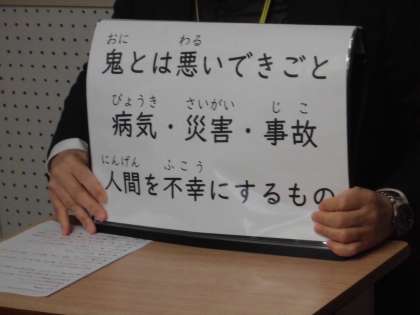 おに わる
鬼とは悪いできごと
びょうき さいがい じこ
病気・災害・事故
にんげん ふこう
人間を不幸にするもの